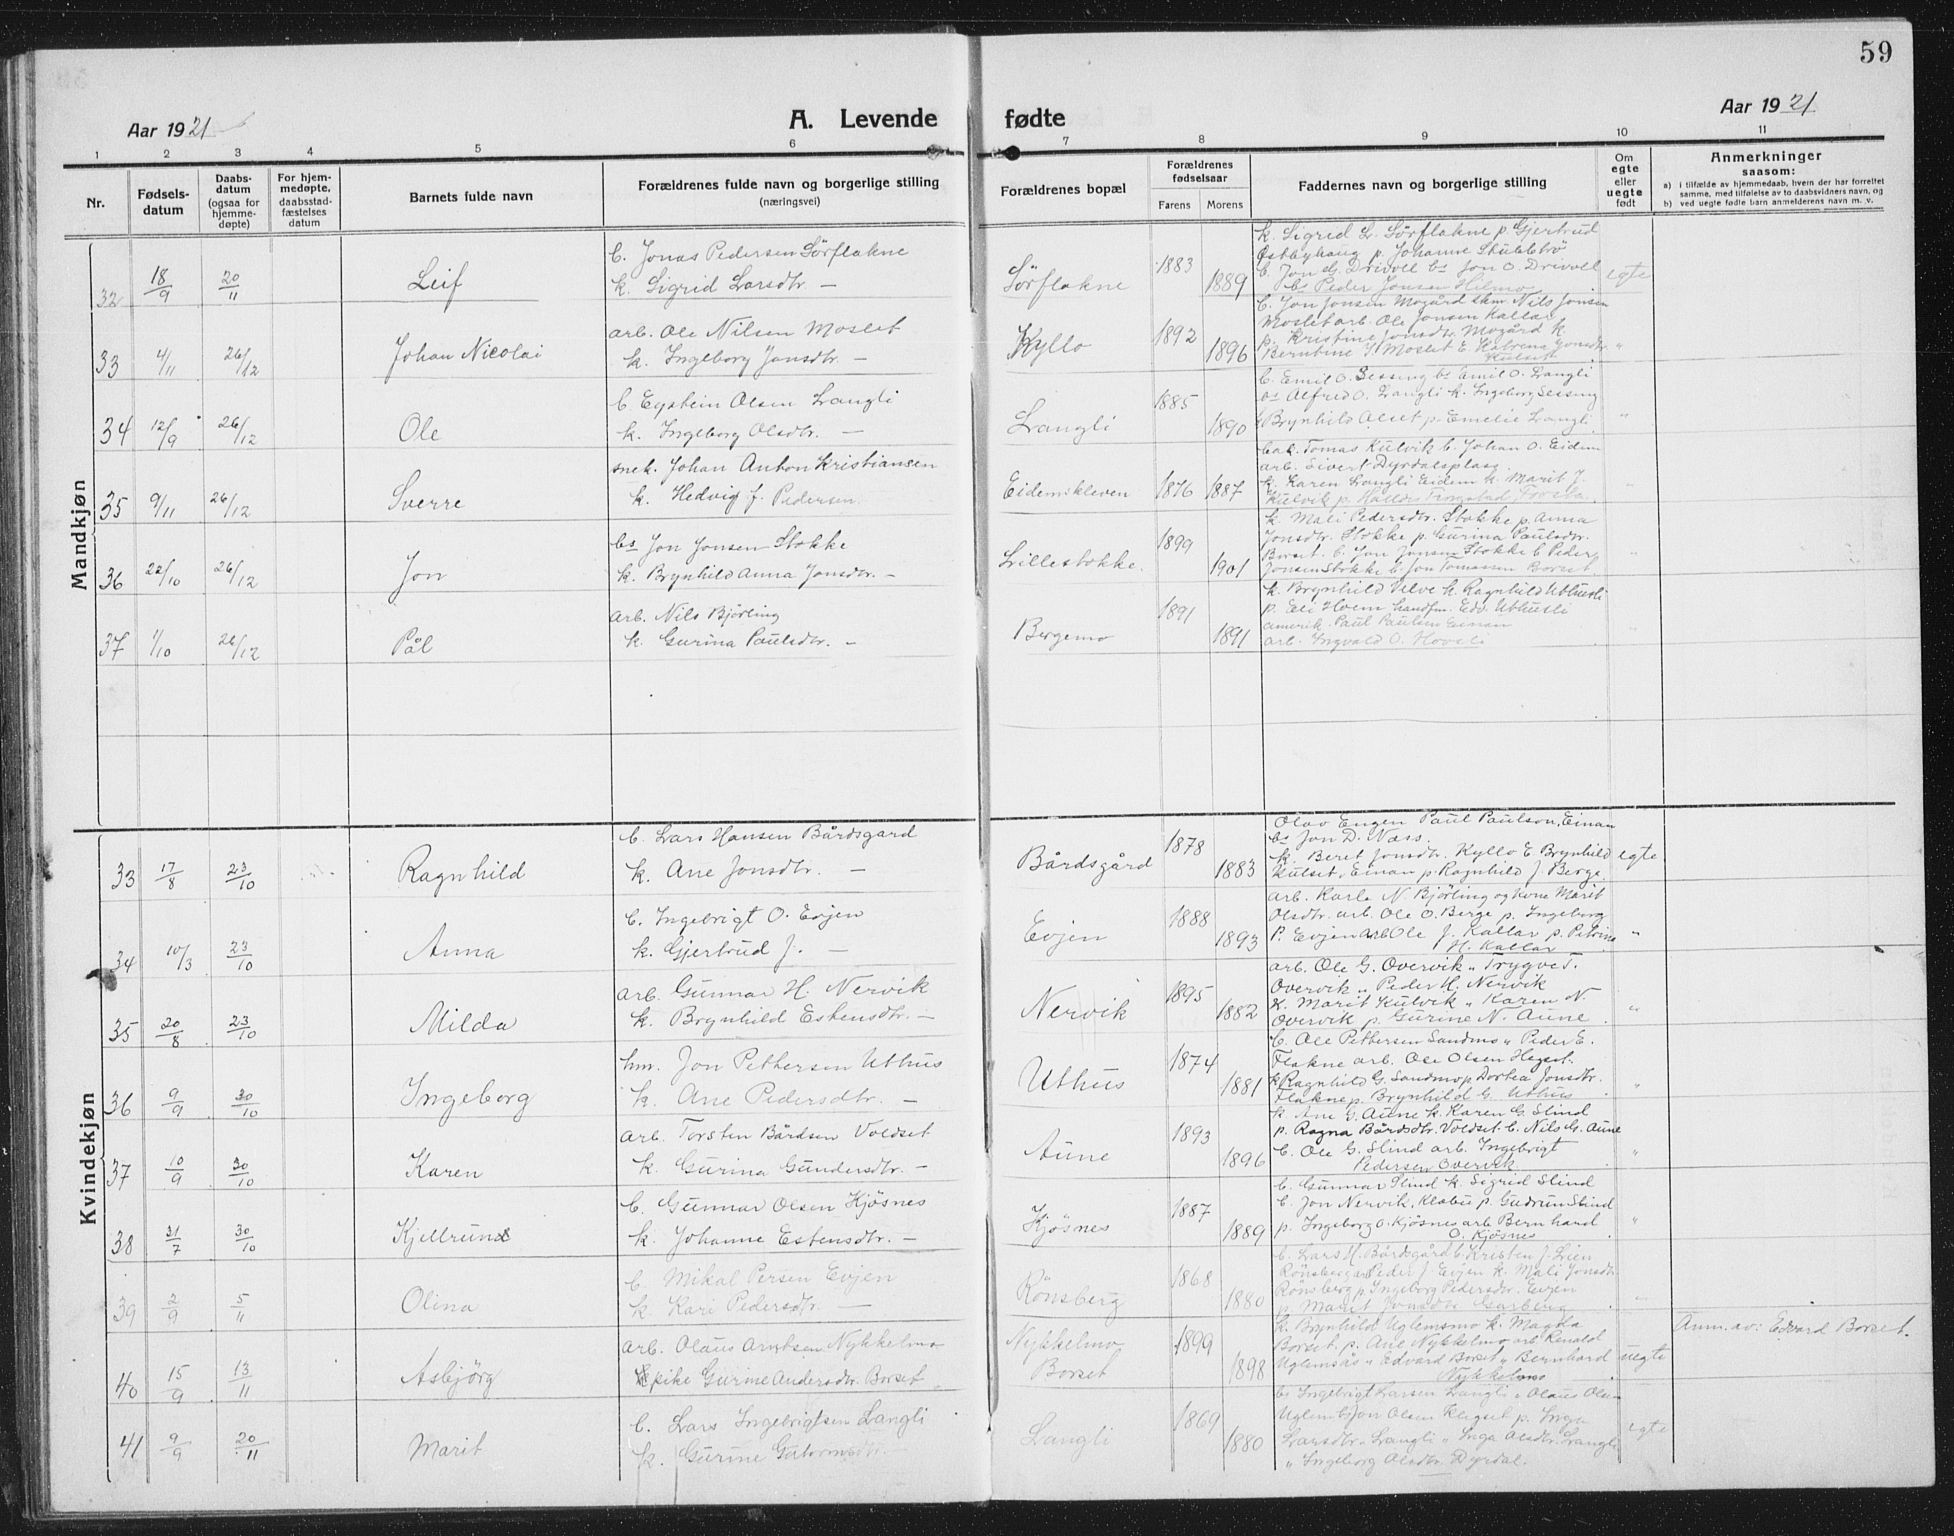 59
Aar 1921
A. Levende
fødte
Aar 1921
1
2
3
4
5
6
7
8
9
10
11
Nr.
Fødsels-
datum
Daabs-
datum
(ogsaa for
hjemme-
døpte)
For hjem-
medøpte,
daabsstad-
fæstelses
datum
Barnets fulde navn
Forældrenes fulde navn og borgerlige stilling
(næringsvei)
Forældrenes bopæl
Forældrenes
fødselsaar
Farens
Morens
Faddernes navn og borgerlige stilling
Om
egte
eller
uegte
født
Anmerkninger
saasom:
a) i tilfælde av hjemmedaab, hvem der har forrettet
samme, med tilføielse av to daabsvidners navn, og
b) ved uegte fødte barn anmelderens navn m. v.
Mandkjøn
32 18/9 20/11 Leif
b. Jonas Pedersen Sörflakne
k. Sigrid Larsdtr. —
Sörflakne 1883 1889
k. Sigrid L. Sörflakne p. Gjertrud
Östbyhaug p. Johanne Stubbbrö
b. Jon G. Drivvol bs Jon O. Drivvol
bs Peder Jonsen Hilmo
egte
33 4/11 26/12 Johan Nicolai
arb. Ole Nilsen Moslet
k. Ingeborg Jonsdtr. —
Kyllo 1892 1896
b. Jon Jonsen Mogård skm. Nils Jonsen
Moslet arb. Ole Jonsen Kallar
p. Kristine Jonsdtr. Mogård k.
Berntine H. Moslet E. Katrena Jonsdtr
Kulset
"
34 12/9 26/12 Ole
b. Eystein Olsen Langli
k. Ingeborg Olsdtr. —
Langli 1885 1890
b. Emil O. Sessing bs Emil O. Langli
bs Alfred O. Langli k. Ingeborg Sessing
Brynhild Alset p. Emelie Langli
"
35 9/11 26/12 Sverre
snek. Johan Anton Kristiansen
k. Hedvig J. Pedersen
Eidemskleven 1876 1887
bak. Tomas Kulvik b. Johan O. Eidem
arb. Sivert Dyrdalsplass
k. Karen Langli Eidem k. Marit J.
Kulvik p. Halldis Tingstad
"
36 22/10 26/12 Jon
bs Jon Jonsen Stokke
k. Brynhild Anna Jonsdtr. —
Lillestokke. 1899 1901
k. Mali Pedersdtr. Stokke p. Anna
Jonsdtr. Stokke p. Gurina Paulsdtr.
Borset. b. Jon Jonsen Stokke b. Peder
Jonsen Stokke b. Jon Tomassen Borset
"
37 1/10 26/12 Pål
arb. Nils Bjørling
k. Gurina Paulsdtr. —
Bergemo 1891 1891
k. Brynhild Ulve k. Ragnhild Uthusli
p. Eli Hoem handsm. Edv. Uthusli
amerik. Paul Paulsen Einan
arb. Ingvald O. Hovsli
"
Kvindekjøn
33 17/8 23/10 Ragnhild
b. Lars Hansen Bårdsgard
k. Ane Jonsdtr. —
Bårdsgård 1878 1883
Olav Engen Paul Paulson, Einan
bs Jon D. Næss.
k. Beret Jonsdtr. Kyllo E. Brynhild
Kulset, Einan p. Ragnhild J. Berge
egte
34 10/3 23/10 Anna
b. Ingebrigt O. Evjen
k. Gjertrud J. —
Evjen 1888 1893
arb. Karle N. Bjørling og kone Marit
Olsdtr. arb. Ole O. Berge p. Ingeborg
P. Evjen arb Ole J. Kallar p. Petrine
H. Kallar
"
35 20/8 23/10 Milda
arb. Gunnar H. Nervik
k. Brynhild Estensdtr. —
Nervik 1895 1882
arb. Ole G. Overvik " Trygve T.
Overvik " Peder H. Nervik
k. Marit Kulvik " Karen N.
Overvik p. Gurine N. Aune
"
36 9/9 30/10 Ingeborg
hm. Jon Pettersen Uthus
k. Ane Pedersdtr. —
Uthus 1874 1881
b. Ole Pettersen Sandmo " Peder E.
Flakne arb. Ole Olsen Hegset.
k Ragnhild G. Sandmo p Dortea Jonsdtr.
Flakne p. Brynhild G. Uthus
"
37 10/9 30/10 Karen
arb. Torsten Bårdsen Voldset
k. Gurina Gundersdtr. —
Aune 1893 1896
k. Ane G. Aune k. Karen G. Slind
p. Ragna Bårdsdtr. Voldset b. Nils G. Aune
b. Ole G. Slind arb. Ingebrigt
Pedersen Overvik
"
38 31/7 30/10 Kjellrund
b. Gunnar Olsen Kjösnes
k. Johanne Estensdtr. —
Kjösnes 1887 1889
b. Gunnar Slind k. Sigrid Slind
b. Jon Nervik, Klæbu p. Gudrun Slind
p. Ingeborg O. Kjösnes arb. Bernhard
O. Kjösnes
"
39 2/9 5/11 Olina
b. Mikal Persen Evjen
k. Kari Pedersdtr. —
Rönsberg 1868 1880
b. Lars H. Bårdsgård b. Kristen J. Lien
Rönsberg arb Peder J. Evjen k. Mali Jonsdtr.
Rönsberg p. Ingeborg Pedersdtr. Evjen
p. Marit Jonsdtr Garberg
"
40 15/9 13/11 Asbjörg
arb. Olaus Arntsen Nykkelmo
pike Gurine Andersdtr. Borset
Nykkelmo
Borset 1899 1898
k. Brynhild Uglemsmo k. Magda
Borset. p. Ane Nykkelmo arb Renald
Uglemsås " Edvard Borset " Bernhard
Nykkelmo
uegte
Anm. av: Edvard Borset.
41 9/9 20/11 Marit
b. Lars Ingebrigtsen Langli
k. Gurine Guttormsdtr.
Langli 1869 1880
bs Ingebrigt Larsen Langli " Olaus Olsen
Uglem bs Jon Olsen Flegset p. Inga
Larsdtr. Langli " Inga Olsdtr. Langli
" Ingeborg Olsdtr. Dyrdal.
egte